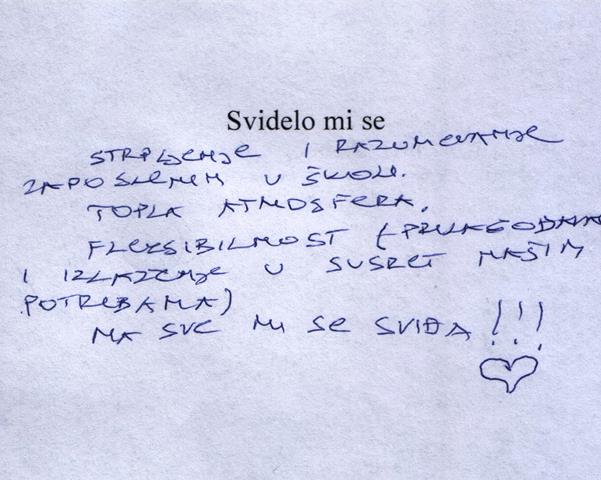 Svidelo mi se
STRPLJENJE I RAZUMEVANJE
ZAPOSLENIH U ŠKOLI.
TOPLA ATMOSFERA.
FLEKSIBILNOST (PRILAGOĐAVA
I IZLAŽENJE U SUSRET NAŠIM
POTREBAMA)
MA SVE MI SE SVIĐA!!!